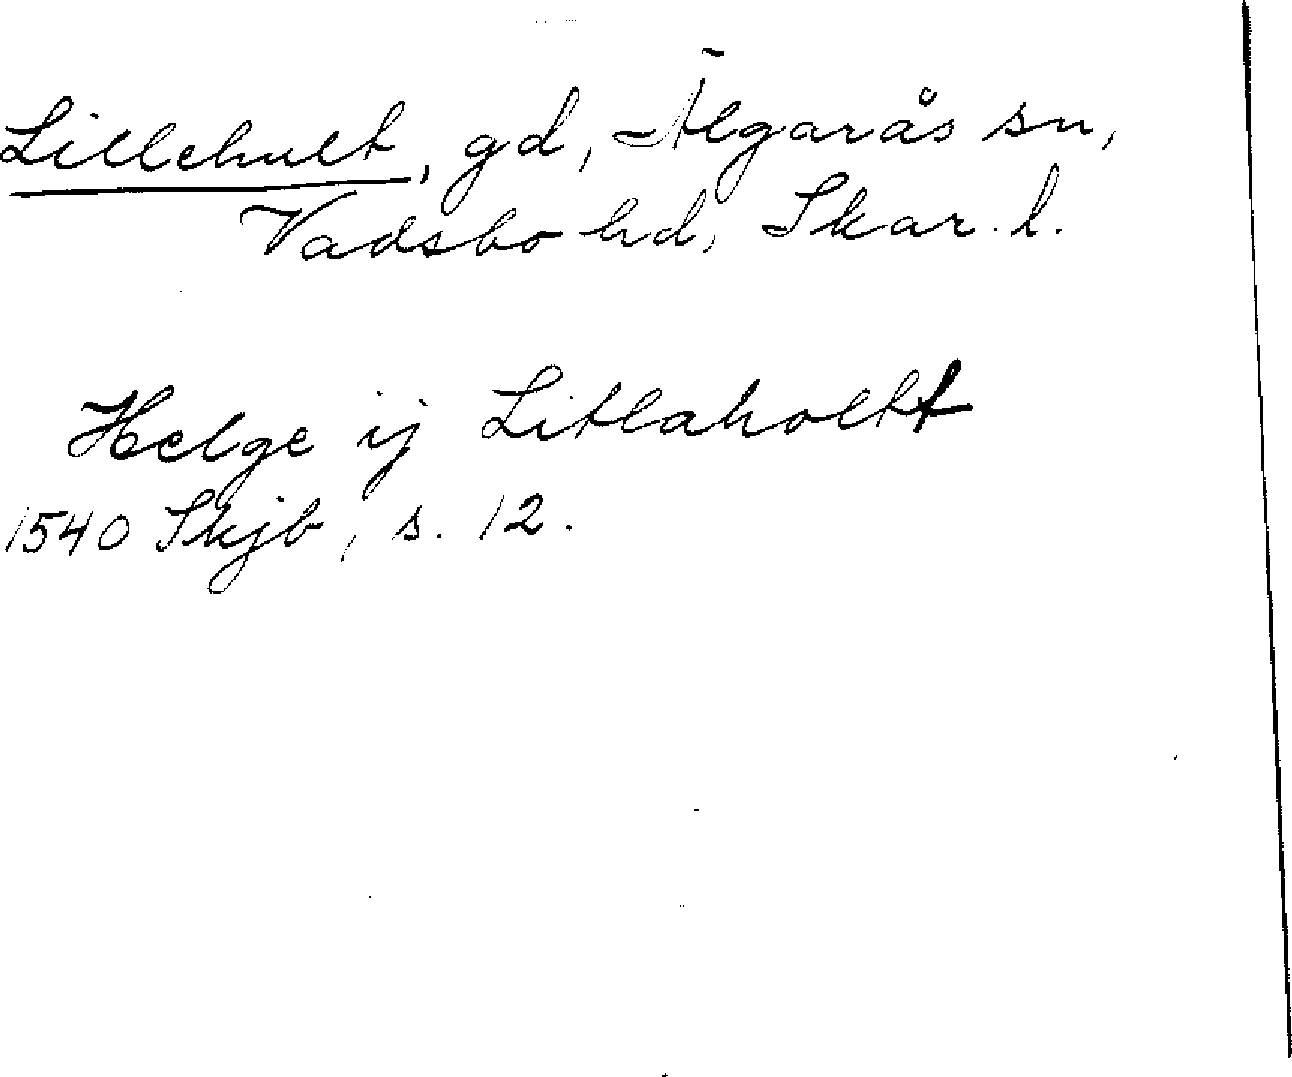 Lillehult, gd, Älgarås sn,
Vadsbo hd, Skar. l.
Helge ij Litlaholtt
1540 Skjb, s. 12.